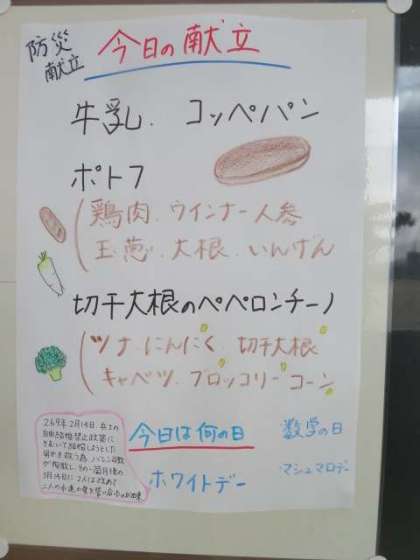 防災
献立
今日の献立
牛乳. コッペパン
ポトフ
鶏肉. ウインナー 人参
玉葱. 大根. いんげん
切干大根のペペロンチーノ
ツナ. にんにく. 切干大根
キャベツ. ブロッコリー コーン
269年2月14日 兵士の
自由結婚禁止政策に
今日は何の日
数学の日
ホワイトデー
マシュマロデー